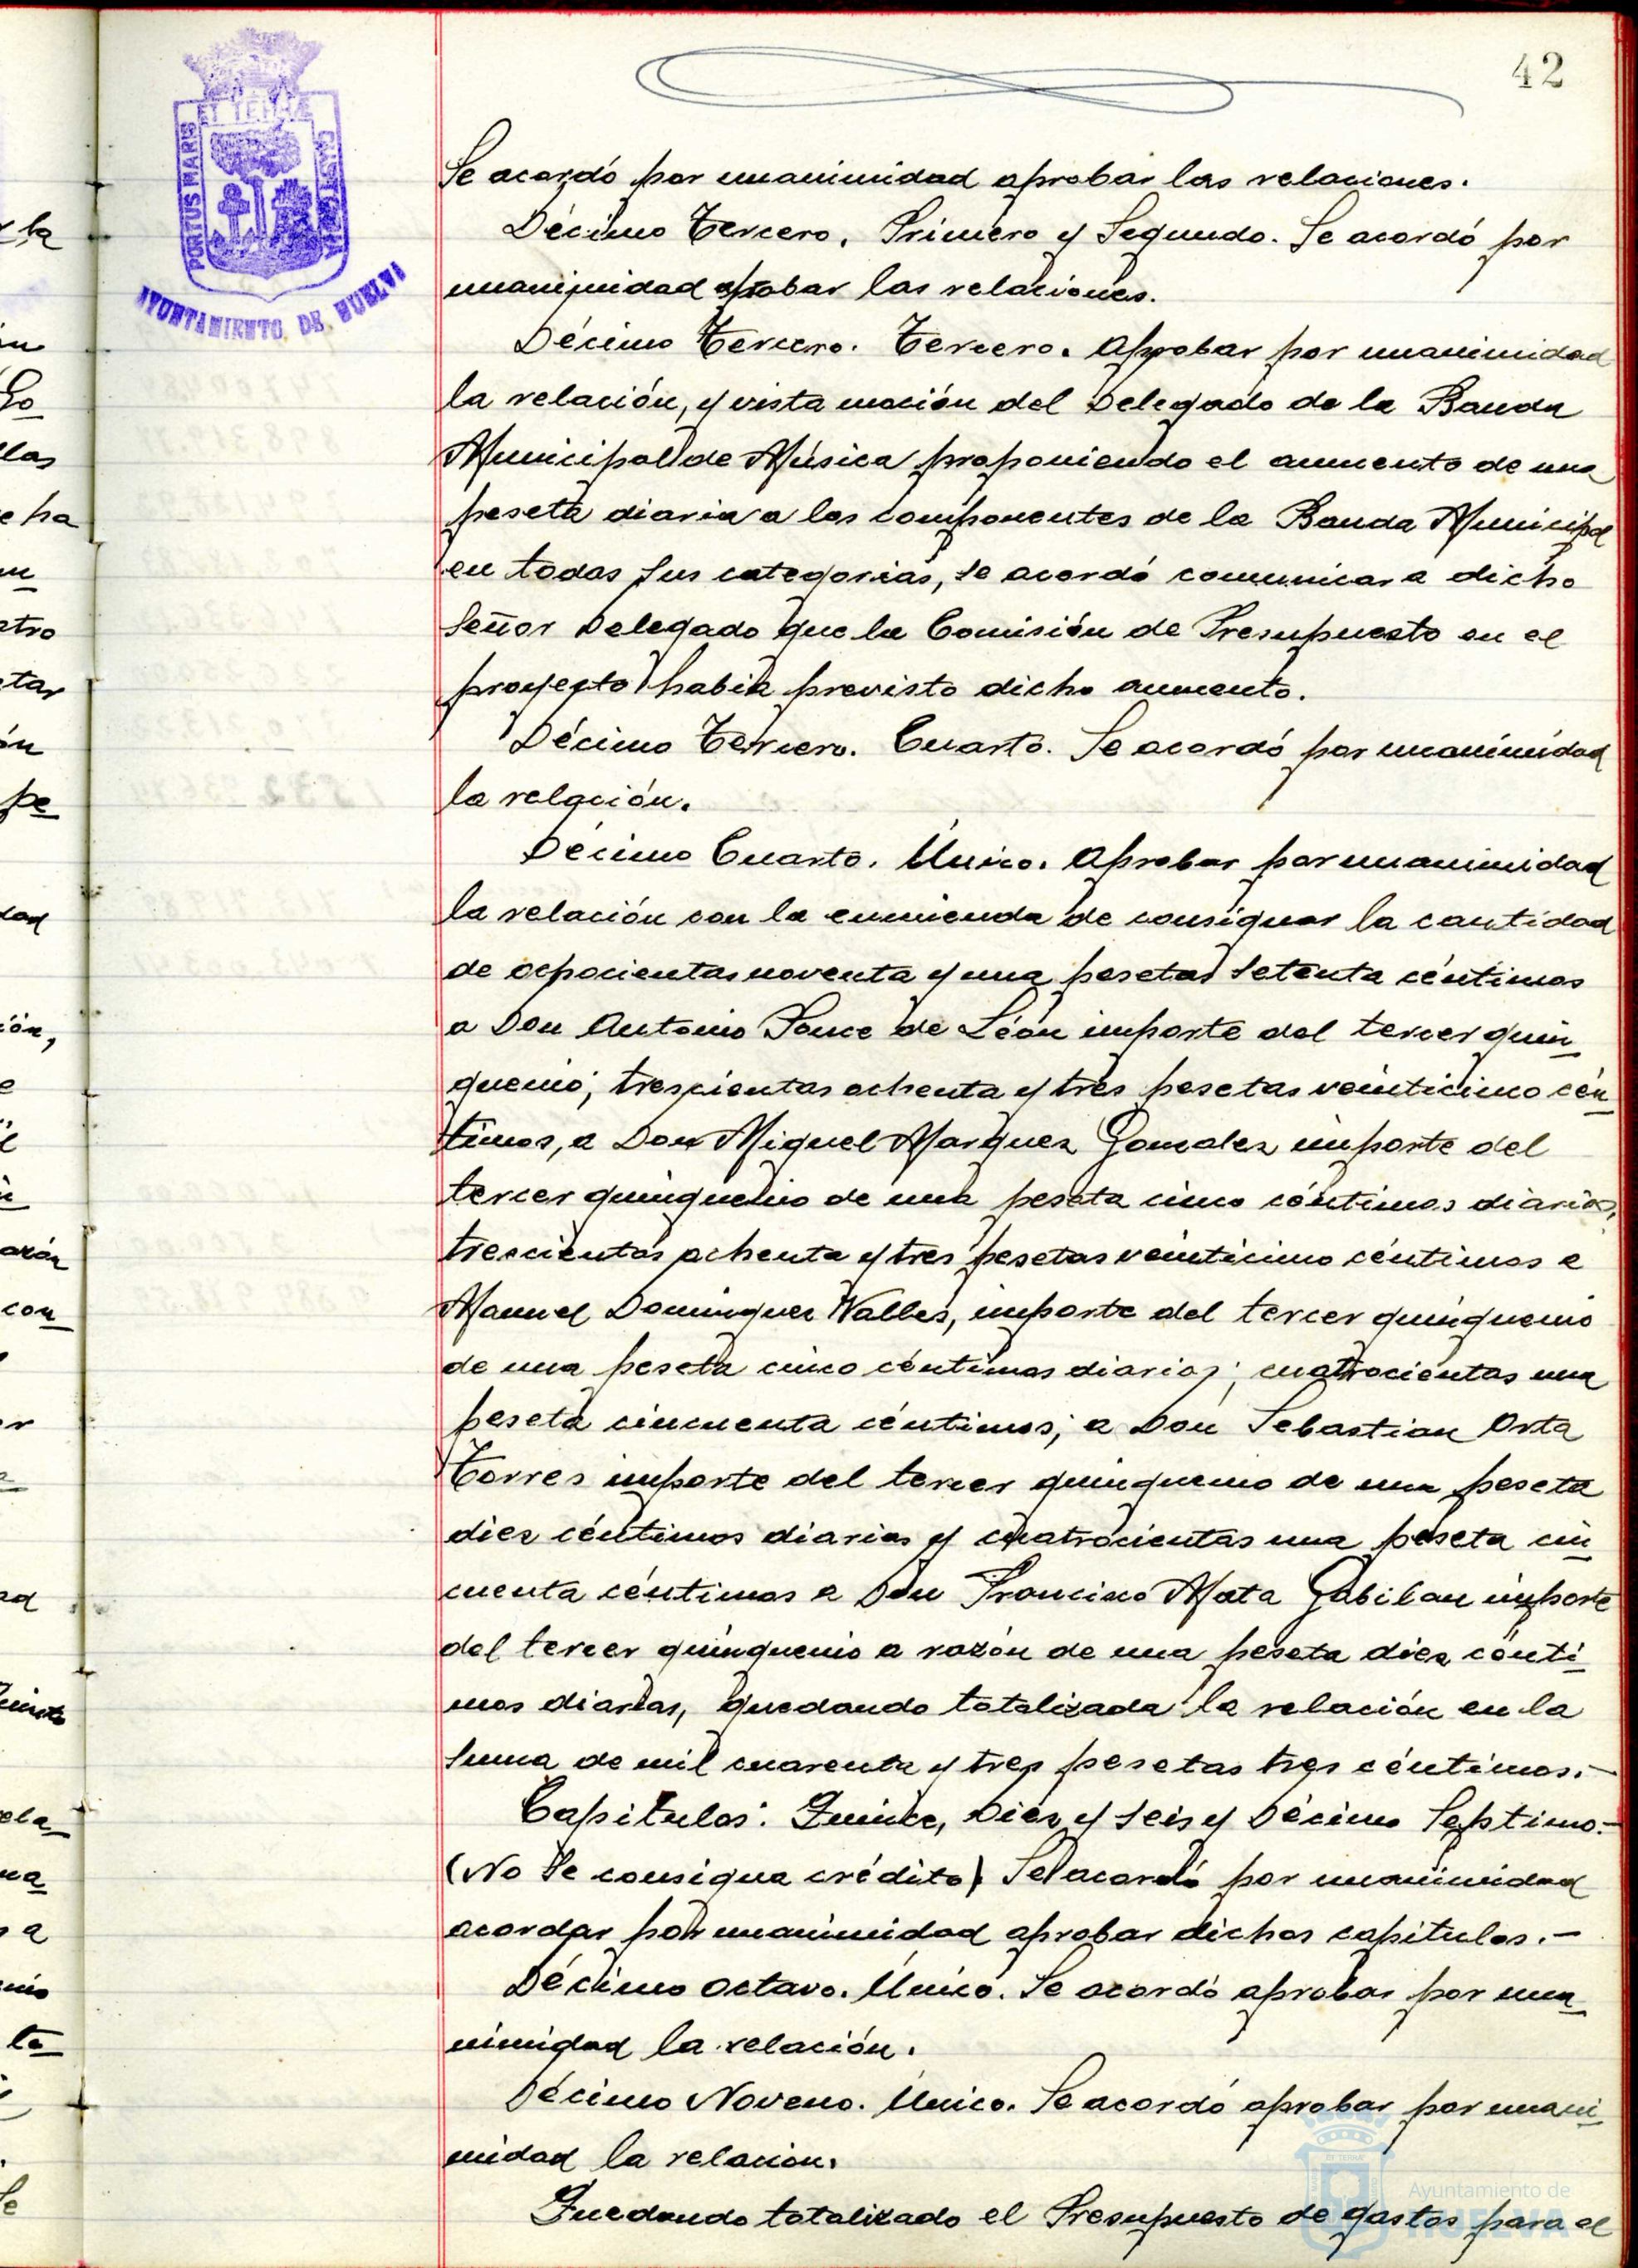 42
PORTUS MARIS
ET TERRAE
CUSTODIA
AYUNTAMIENTO DE HUELVA
Se acordó por unanimidad aprobar las relaciones.
Décimo Tercero. Primero y Segundo. Se acordó por
unanimidad aprobar las relaciones.
Décimo Tercero. Tercero. Aprobar por unanimidad
la relación, y vista moción del Delegado de la Banda
Municipal de Música proponiendo el aumento de una
peseta diaria a los componentes de la Banda Municipal
en todas sus categorias, se acordó comunicar a dicho
Señor Delegado que la Comisión de Presupuesto en el
proyecto habia previsto dicho aumento.
Décimo Tercero. Cuarto. Se acordó por unanimidad
la relación.
Décimo Cuarto. Único. Aprobar por unanimidad
la relación con la enmienda de consignar la cantidad
de ochocientas noventa y una pesetas setenta céntimos
a Don Antonio Ponce de León importe del tercer quin
quenio; trescientas ochenta y tres pesetas veinticinco cén
timos, a Don Miguel Marquez Gonzalez importe del
tercer quinquenio de una peseta cinco céntimos diarios,
trescientas ochenta y tres pesetas veinticinco céntimos a
Manuel Dominguez Valles, importe del tercer quinquenio
de una peseta cinco céntimos diarios; cuatrocientas una
peseta cincuenta céntimos; a Don Sebastian Orta
Torres importe del tercer quinquenio de una peseta
diez céntimos diarios y cuatrocientas una peseta cin
cuenta céntimos a Don Francisco Mata Gabilan importe
del tercer quinquenio a razón de una peseta diez cénti
mos diarias, quedando totalizada la relación en la
suma de mil cuarenta y tres pesetas tres céntimos.-
Capitulos: Quince, Diez y seis y Décimo Septimo.-
(No se consigna crédito) Se acordó por unanimidad
acordar por unanimidad aprobar dichos capitulos.-
Décimo Octavo. Único. Se acordó aprobar por una
nimidad la relación.
Décimo Noveno. Único. Se acordó aprobar por unani
midad la relacion.
Quedando totalizado el Presupuesto de gastos para el
Ayuntamiento de
HUELVA